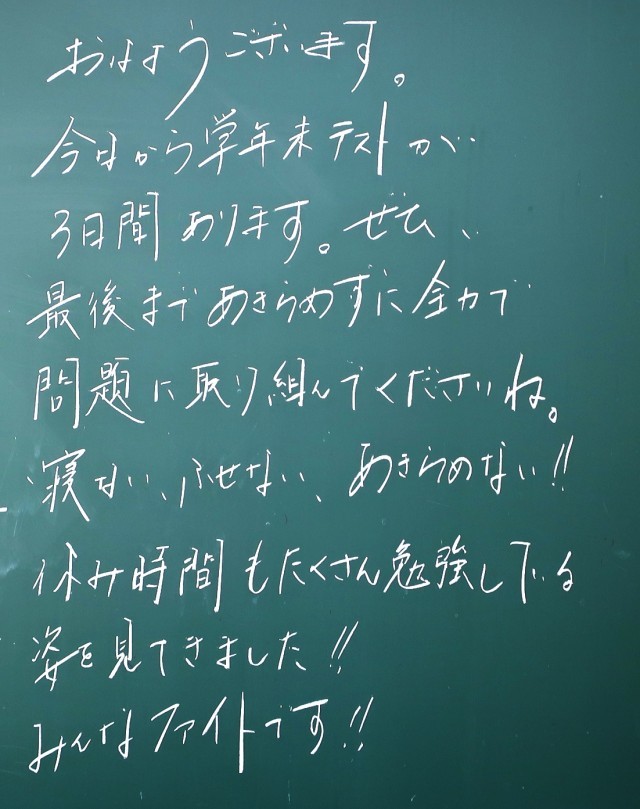 おはようございます。
今日から学年末テストが
3日間あります。ぜひ、
最後まであきらめずに全力で
問題に取り組んでくださいね。
寝ない、ふせない、あきらめない!!
休み時間もたくさん勉強している
姿を見てきました!!
みんなファイトです!!